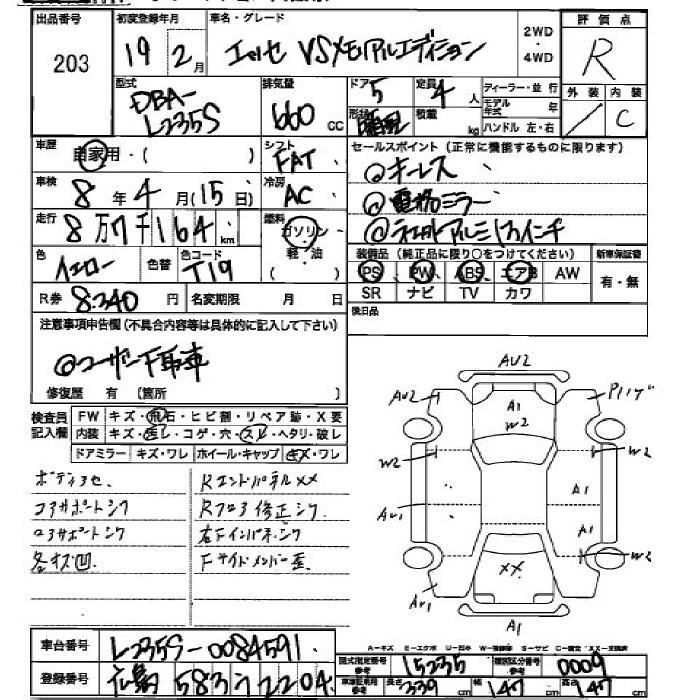 出品番号 初度登録年月 車名・グレード 2WD・4WD 評価点
203 19 2月 エッセ VSメモリアルエディション R
外装 内装
／ C
型式 排気量 ドア 定員 ディーラー・並行
DBA-L235S 660cc 5 4人
形状 積載 kg モデル年式 年
ハンドル 左・右
車歴 自家用・( ) シフト FAT
セールスポイント (正常に機能するものに限ります)
車検 8年4月(15日) 冷房 AC
◎キーレス
◎電格ミラー
走行 8万7千164km 燃料 ガソリン・軽・油 ( )
色 イエロー 色替 色コード T19
装備品 (純正品に限り○をつけてください) 新車保証書
PS PW ABS エアB AW 有・無
SR ナビ TV カワ
R券 8,240円 名変期限 月 日
後日品
注意事項申告欄(不具合内容等は具体的に記入して下さい)
◎ユーザー下取車
修復歴 有 〔箇所 〕
検査員記入欄
FW キズ・飛石・ヒビ割・リペア跡・X要
内装 キズ・汚レ・コゲ・穴・スレ・ヘタリ・破レ
ドアミラー キズ・ワレ ホイール・キャップ キズ・ワレ
Rエンドパネル××
コアサポートシワ Rフロア修正シワ
右FインパネシワF
各キズ凹 Fサイドメンバー歪
AU2
AU2 A1 W2
W2 W2
AU1 A1
A1
W2
××
AU1
A1
A-キズ E-エクボ U-凹み
車台番号 L235S-0084591
登録番号 広島 583 フ 2204
型式指定番号 参考 15235 類別区分番号 参考 0009
車庫証明用 参考 長さ 339cm 幅 147cm 高さ 147cm